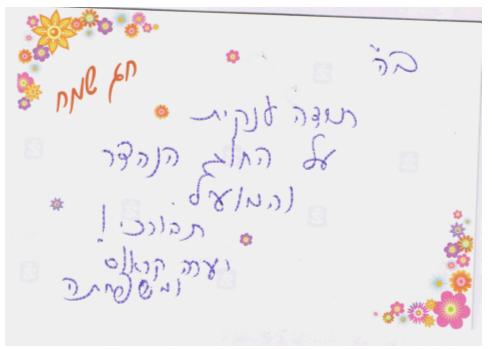 בה"
חג שמח
תודה ענקית
על החוג הנהדר
והמועיל
תבורכי!
יערה קראוס
ומשפחתה